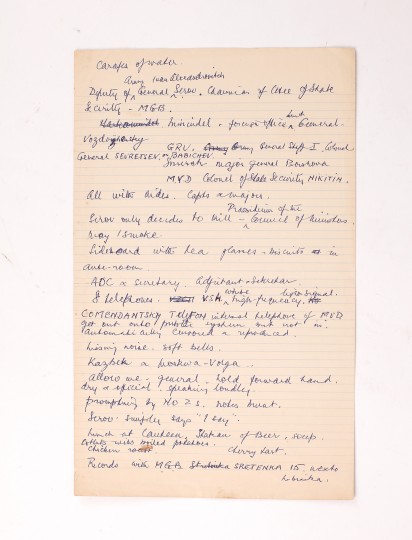 Carafes of water
Army Ivan Alexandrovitch
Deputy of General Serov. Chairman of Cttee of State
Security - MGB.
Minindel - foreign office Lieut General -
Vozdvizhensky
GRU. Army General Staff I. Colonel
General SEVREISEN. or BABICHEV.
Smersh Major General
MVD Colonel of State Security NIKITIN.
All with aides. Capts & majors.
Praesidium of the
Serov only decides to kill - Council of Ministers.
may smoke
Sideboard with tea glasses - biscuits in
ante-room.
ADC & secretary. Adjutant - Sekretar.
8 telephones. V.Ch. white high-frequency.
COMENDANTSKY TELEFON internal telephone of MVD
get out onto public system but not in.
Automatically censored & reproduced.
Hissing noise. soft bells.
Kazbek & Moskwa-Volga.
Allow me - general - hold forward hand.
dry & official - speaking loudly.
prompting by No 2s. notes burnt.
Serov simply says "I say".
Lunch at Canteen, Stakan of Beer, soup.
cutlets with boiled potatoes.
chicken roast Cherry tart.
Records with MGB SRETENKA 15. next to
Lubianka.